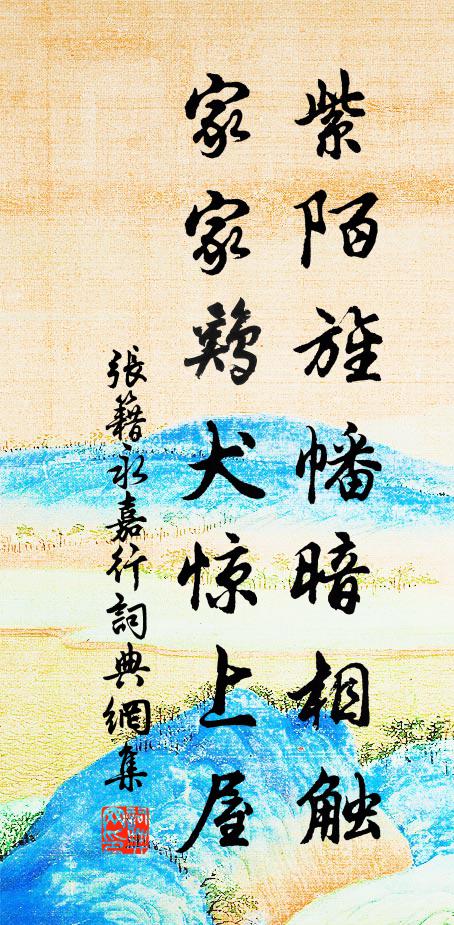 紫陌旌幡暗相触
家家鸡犬惊上屋
張籍永嘉行詞典網集